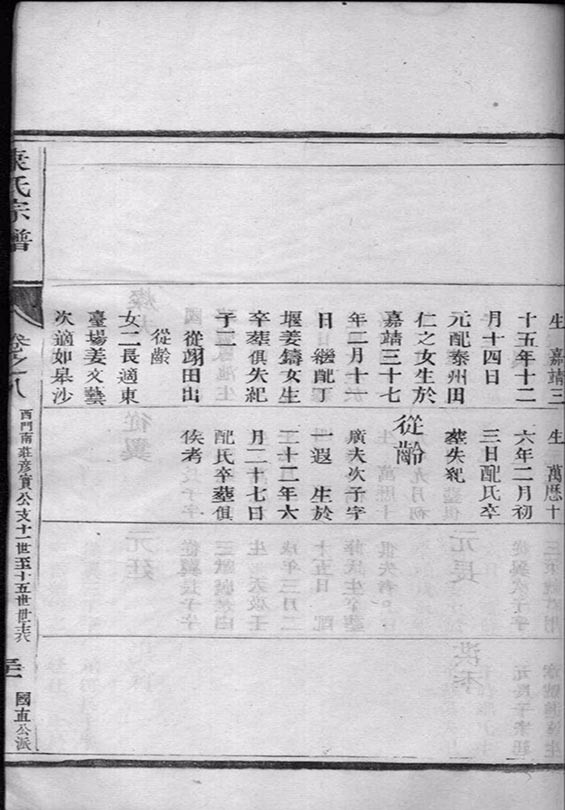 生 嘉靖三
十五年十二
月十四日
元配泰州田
仁之女生於
嘉靖三十七
年二月十一
日 繼配丁
堰姜鑄女生
卒葬俱失紀
子一
從翊田出
從齡
女二長適東
臺場姜文藝
次適如皋沙
生 萬曆十
六年二月初
三日配氏卒
葬失紀
從齡
廣夫次子字
一遐 生於
二十二年六
月二十七日
配氏卒葬俱
俟考
袁氏宗譜
卷之八
西門南莊彥實公支十一世至十五世世表
國直公派